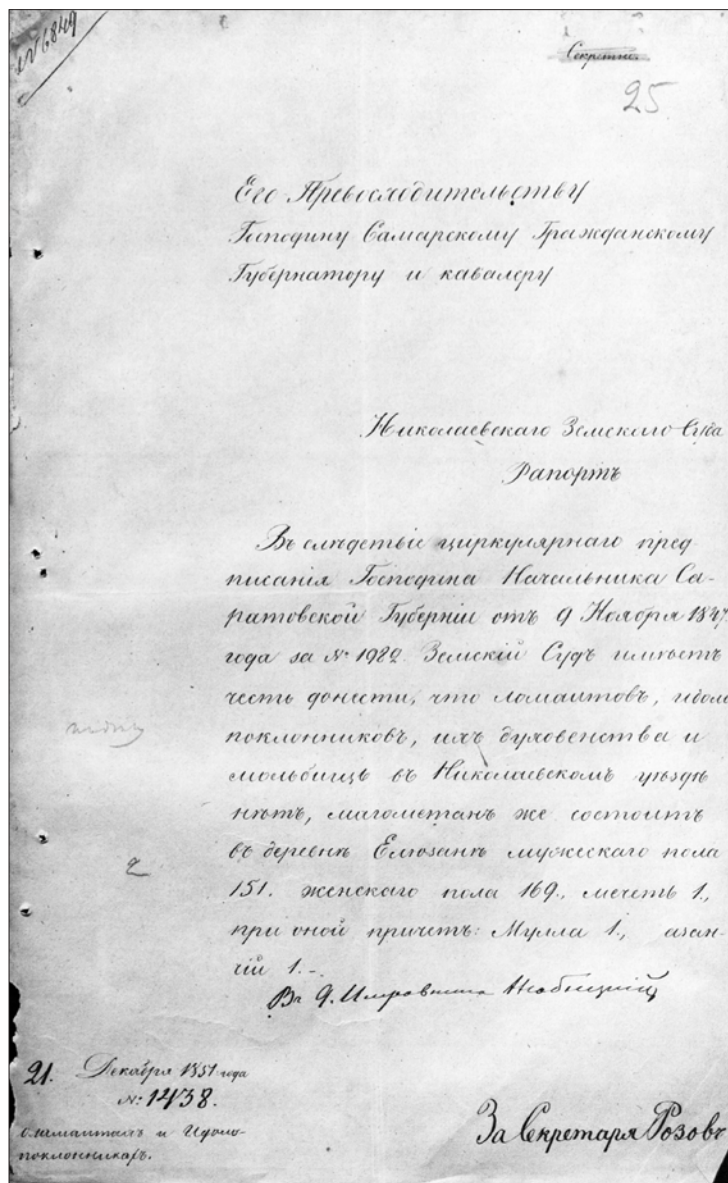 № 6849
Секретно.
25
Его Превосходительству
Господину Самарскому Гражданскому
Губернатору и кавалеру
Николаевскаго Земскаго Суда
Рапортъ
Въ слѣдствіе циркулярнаго пред-
писанія Господина Начальника Са-
ратовской Губерніи отъ 9 Ноября 1847
года за № 1982. Земскій Судъ имѣетъ
честь донести, что ламаитовъ, идоло
поклонниковъ, ихъ духовенства и
мольбищъ въ Николаевскомъ уѣздѣ
нѣтъ, магометанъ же состоитъ
въ деревнѣ Елюзанѣ мужескаго пола
151. женскаго пола 169., мечеть 1.,
при оной причетъ: Мулла 1., азан-
чій 1.-
21. Декабря 1851 года
№ 1438.
о ламаитахъ и Идоло-
поклонникахъ.
За Секретаря Розовъ